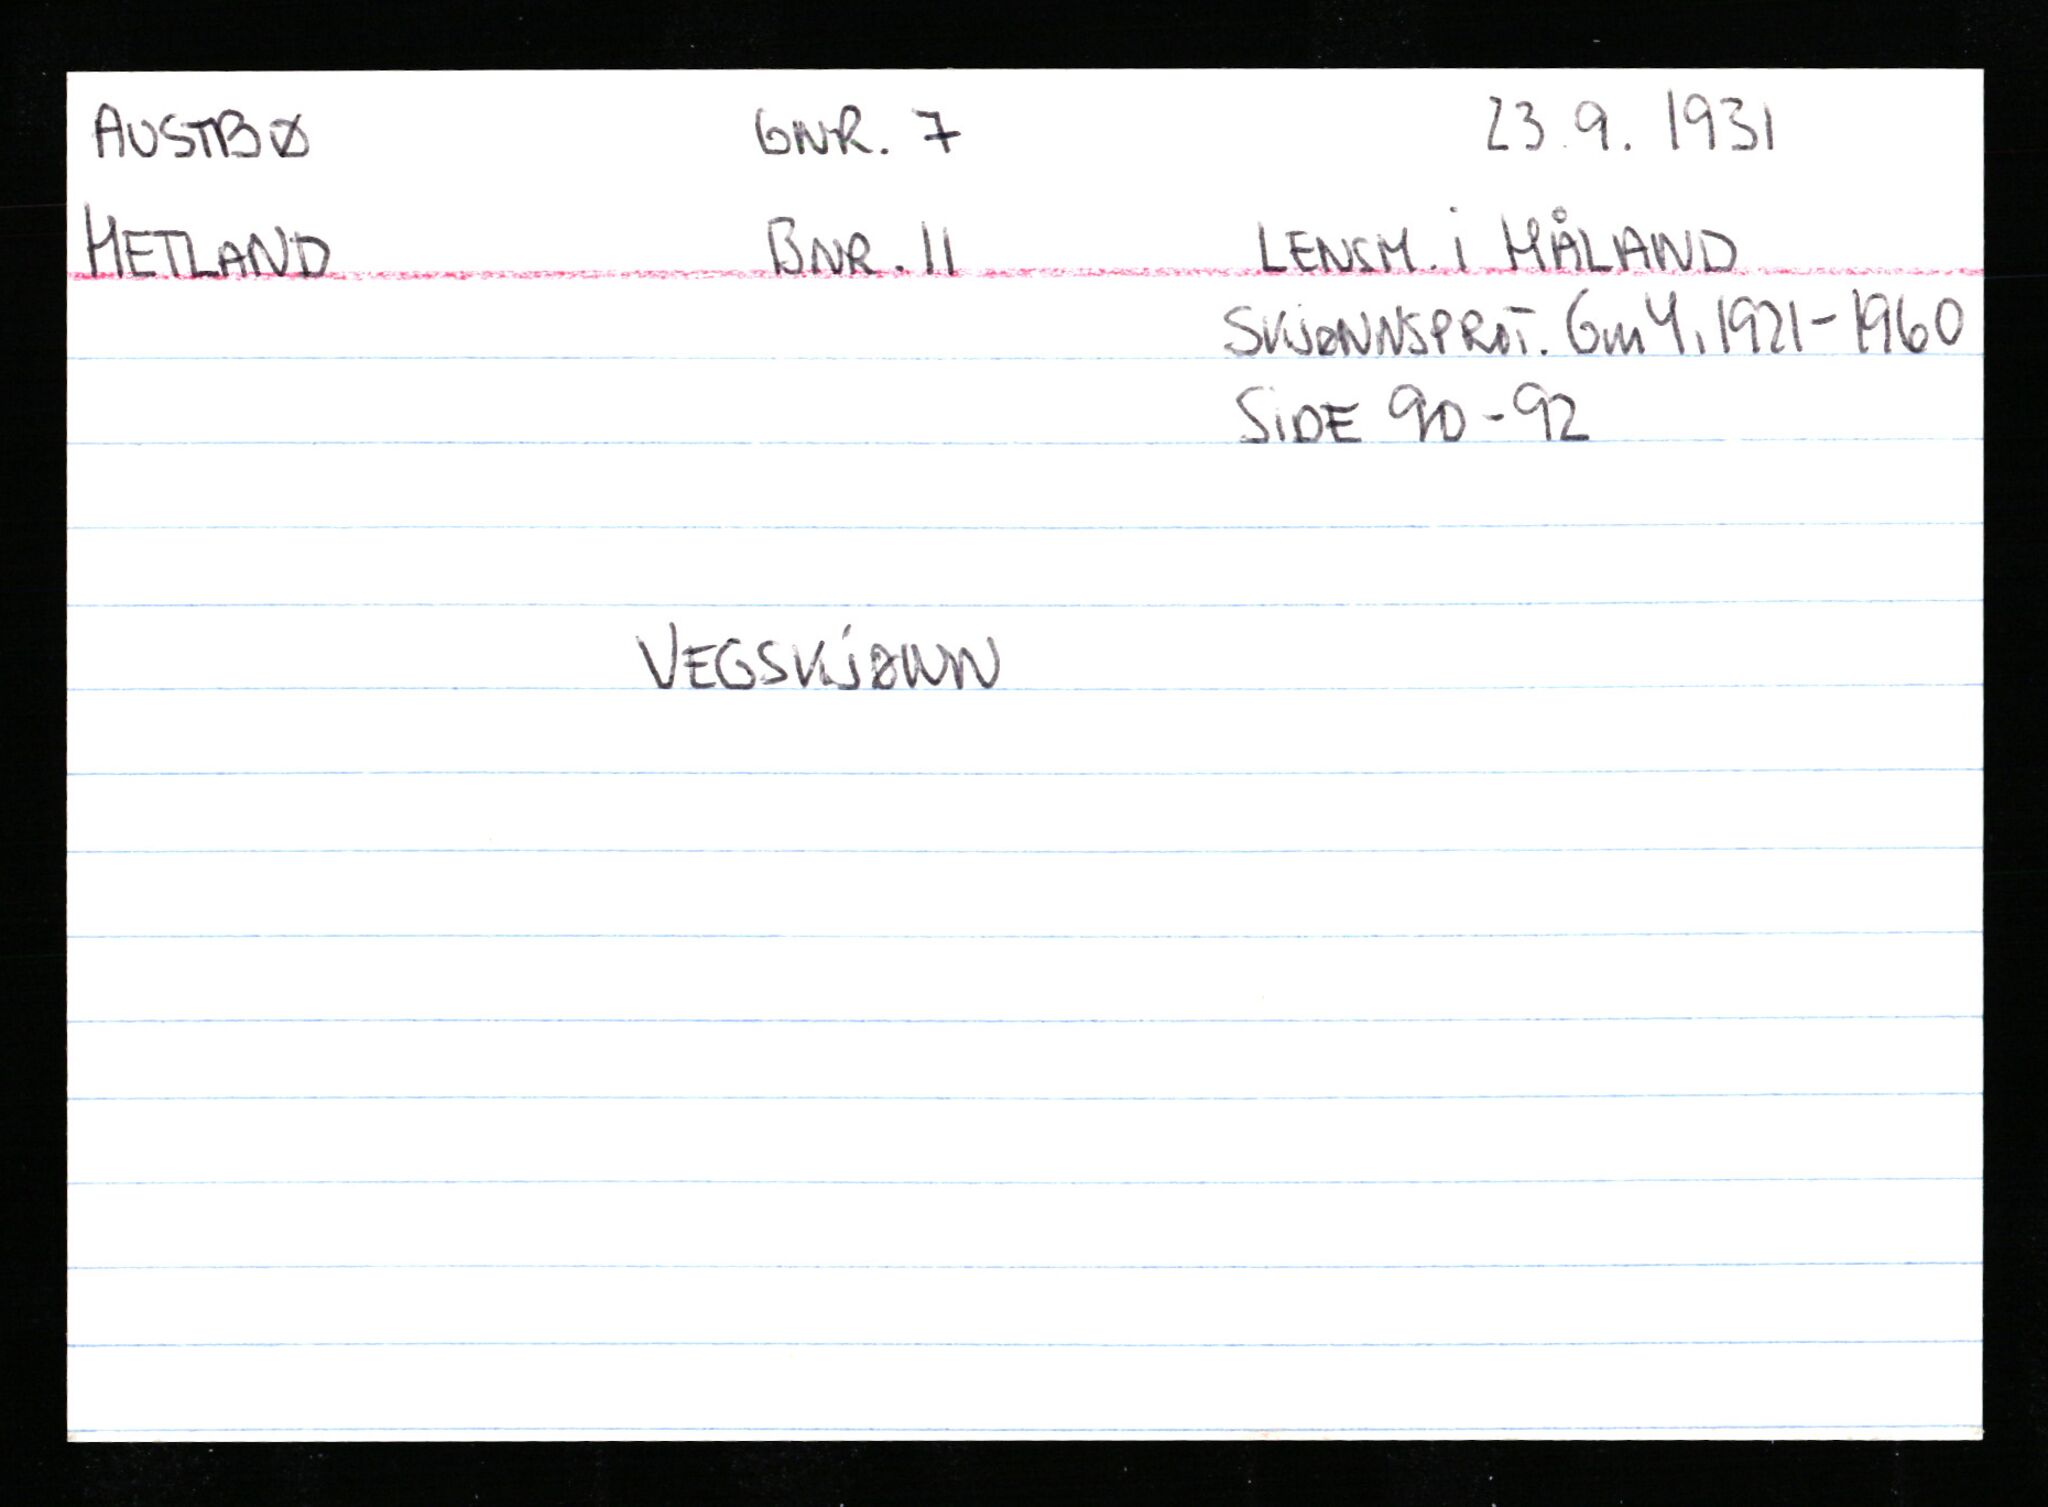 AUSTBØ GNR. 7 23.9. 1931
HETLAND BNR. 11 LENSM. i HÅLAND
SKJØNNSPROT. Gm 4, 1921-1960
SIDE 90-92
VEGSKJØNN